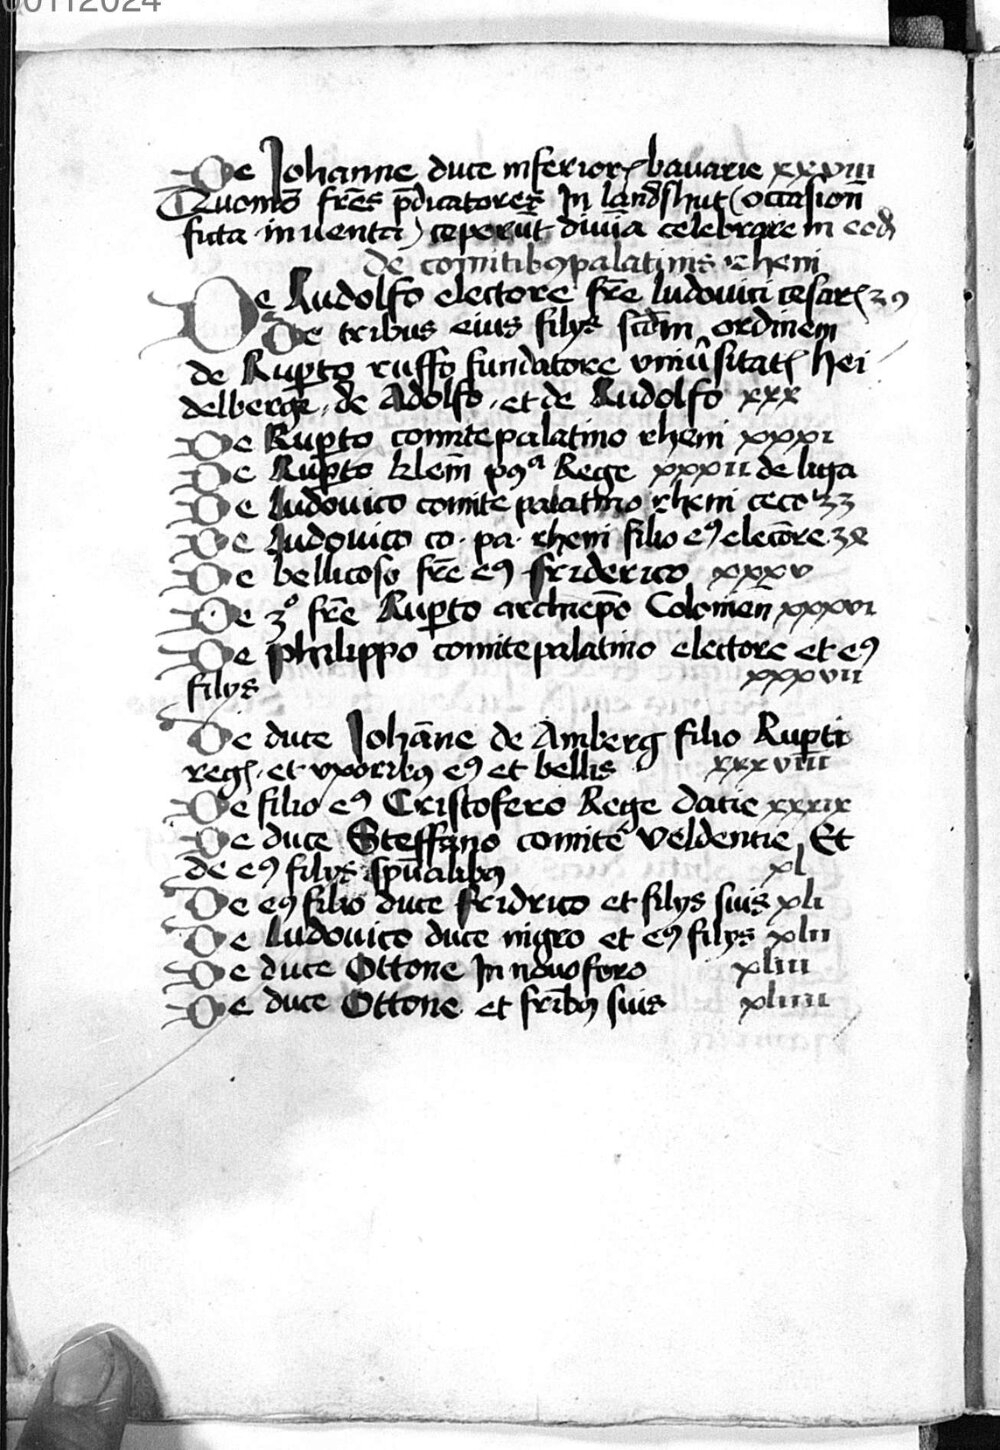 00112024
De Johanne duce inferior bavarie xxviii
Quomō frēs p̄dicatores In landshut (occasioñ
ficta inventa) ceperūt diuīa celebrare in eod
de comitibꝰ palatinis rheni
De Rudolfo electore frē ludouici cesar 29
De tribus eius filijs scd̄m ordinem
de Rup̄to ruffo fundatore vniu̓sitat hei
delberge, de Adolfo, et de Rudolfo xxx
De Rup̄to comite palatino rheni xxxi
De Rup̄to klem̄ Rege xxxii de liga
De Ludouico comite palatino rheni ceco 33
De Ludouico co. pa. rheni filio eꝰ electore 34
De bellicoso frē eꝰ friderico xxxv
De 3º frē Rup̄to archiep̄o Colonień xxxvi
De philippo comite palatino electore et eꝰ
filijs xxxvii
De duce Johāne de Amberg filio Rup̄ti
reg. et vxoribꝰ eꝰ et bellis xxxviii
De filio eꝰ Cristofero Rege datie xxxix
De duce Steffano comite veldentie Et
de eꝰ filijs sp̄ualibꝰ xl
De eꝰ filio duce fridrico et filijs suis xli
De Ludouico duce nigro et eꝰ filijs xlii
De duce Ottone In nouoforo xliii
De duce Ottone et frībꝰ suis xliiii